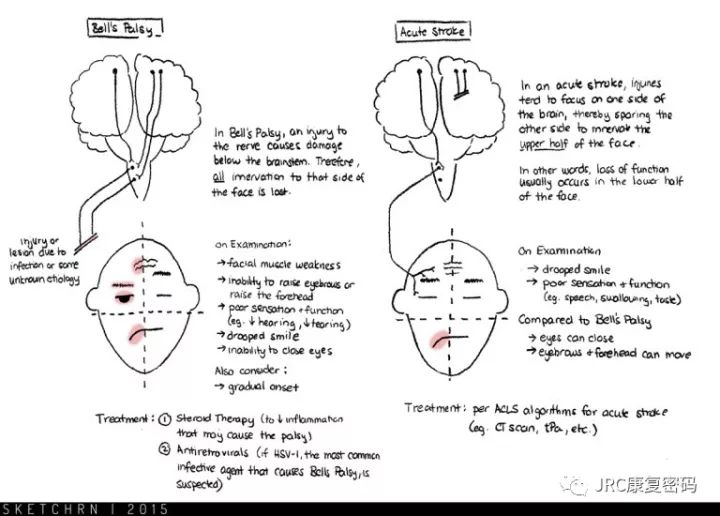 Bell's Palsy
In Bell's Palsy, an injury to
the nerve causes damage
below the brainstem. Therefore,
all innervation to that side of
the face is lost.
injury or
lesion due to
infection or some
unknown etiology
on Examination:
→ facial muscle weakness
→ inability to raise eyebrows or
raise the forehead
→ poor sensation + function
(eg. ↓ hearing, ↓ tearing)
→ drooped smile
→ inability to close eyes
Also consider:
→ gradual onset
Treatment: ① Steroid Therapy (to ↓ inflammation
that may cause the palsy)
② Antiretrovirals (if HSV-1, the most common
infective agent that causes Bells Palsy, is
suspected)
Acute Stroke
In an acute stroke, injuries
tend to focus on one side of
the brain, thereby sparing the
other side to innervate the
upper half of the face.
In other words, loss of function
usually occurs in the lower half
of the face.
On Examination
→ drooped smile
→ poor sensation + function
(eg. speech, swallowing, taste)
Compared to Bell's Palsy
→ eyes can close
→ eyebrows + forehead can move
Treatment: per ACLS algorithms for acute stroke
(eg. CT scan, tPa, etc.)
JRC康复密码
SKETCHRN | 2015